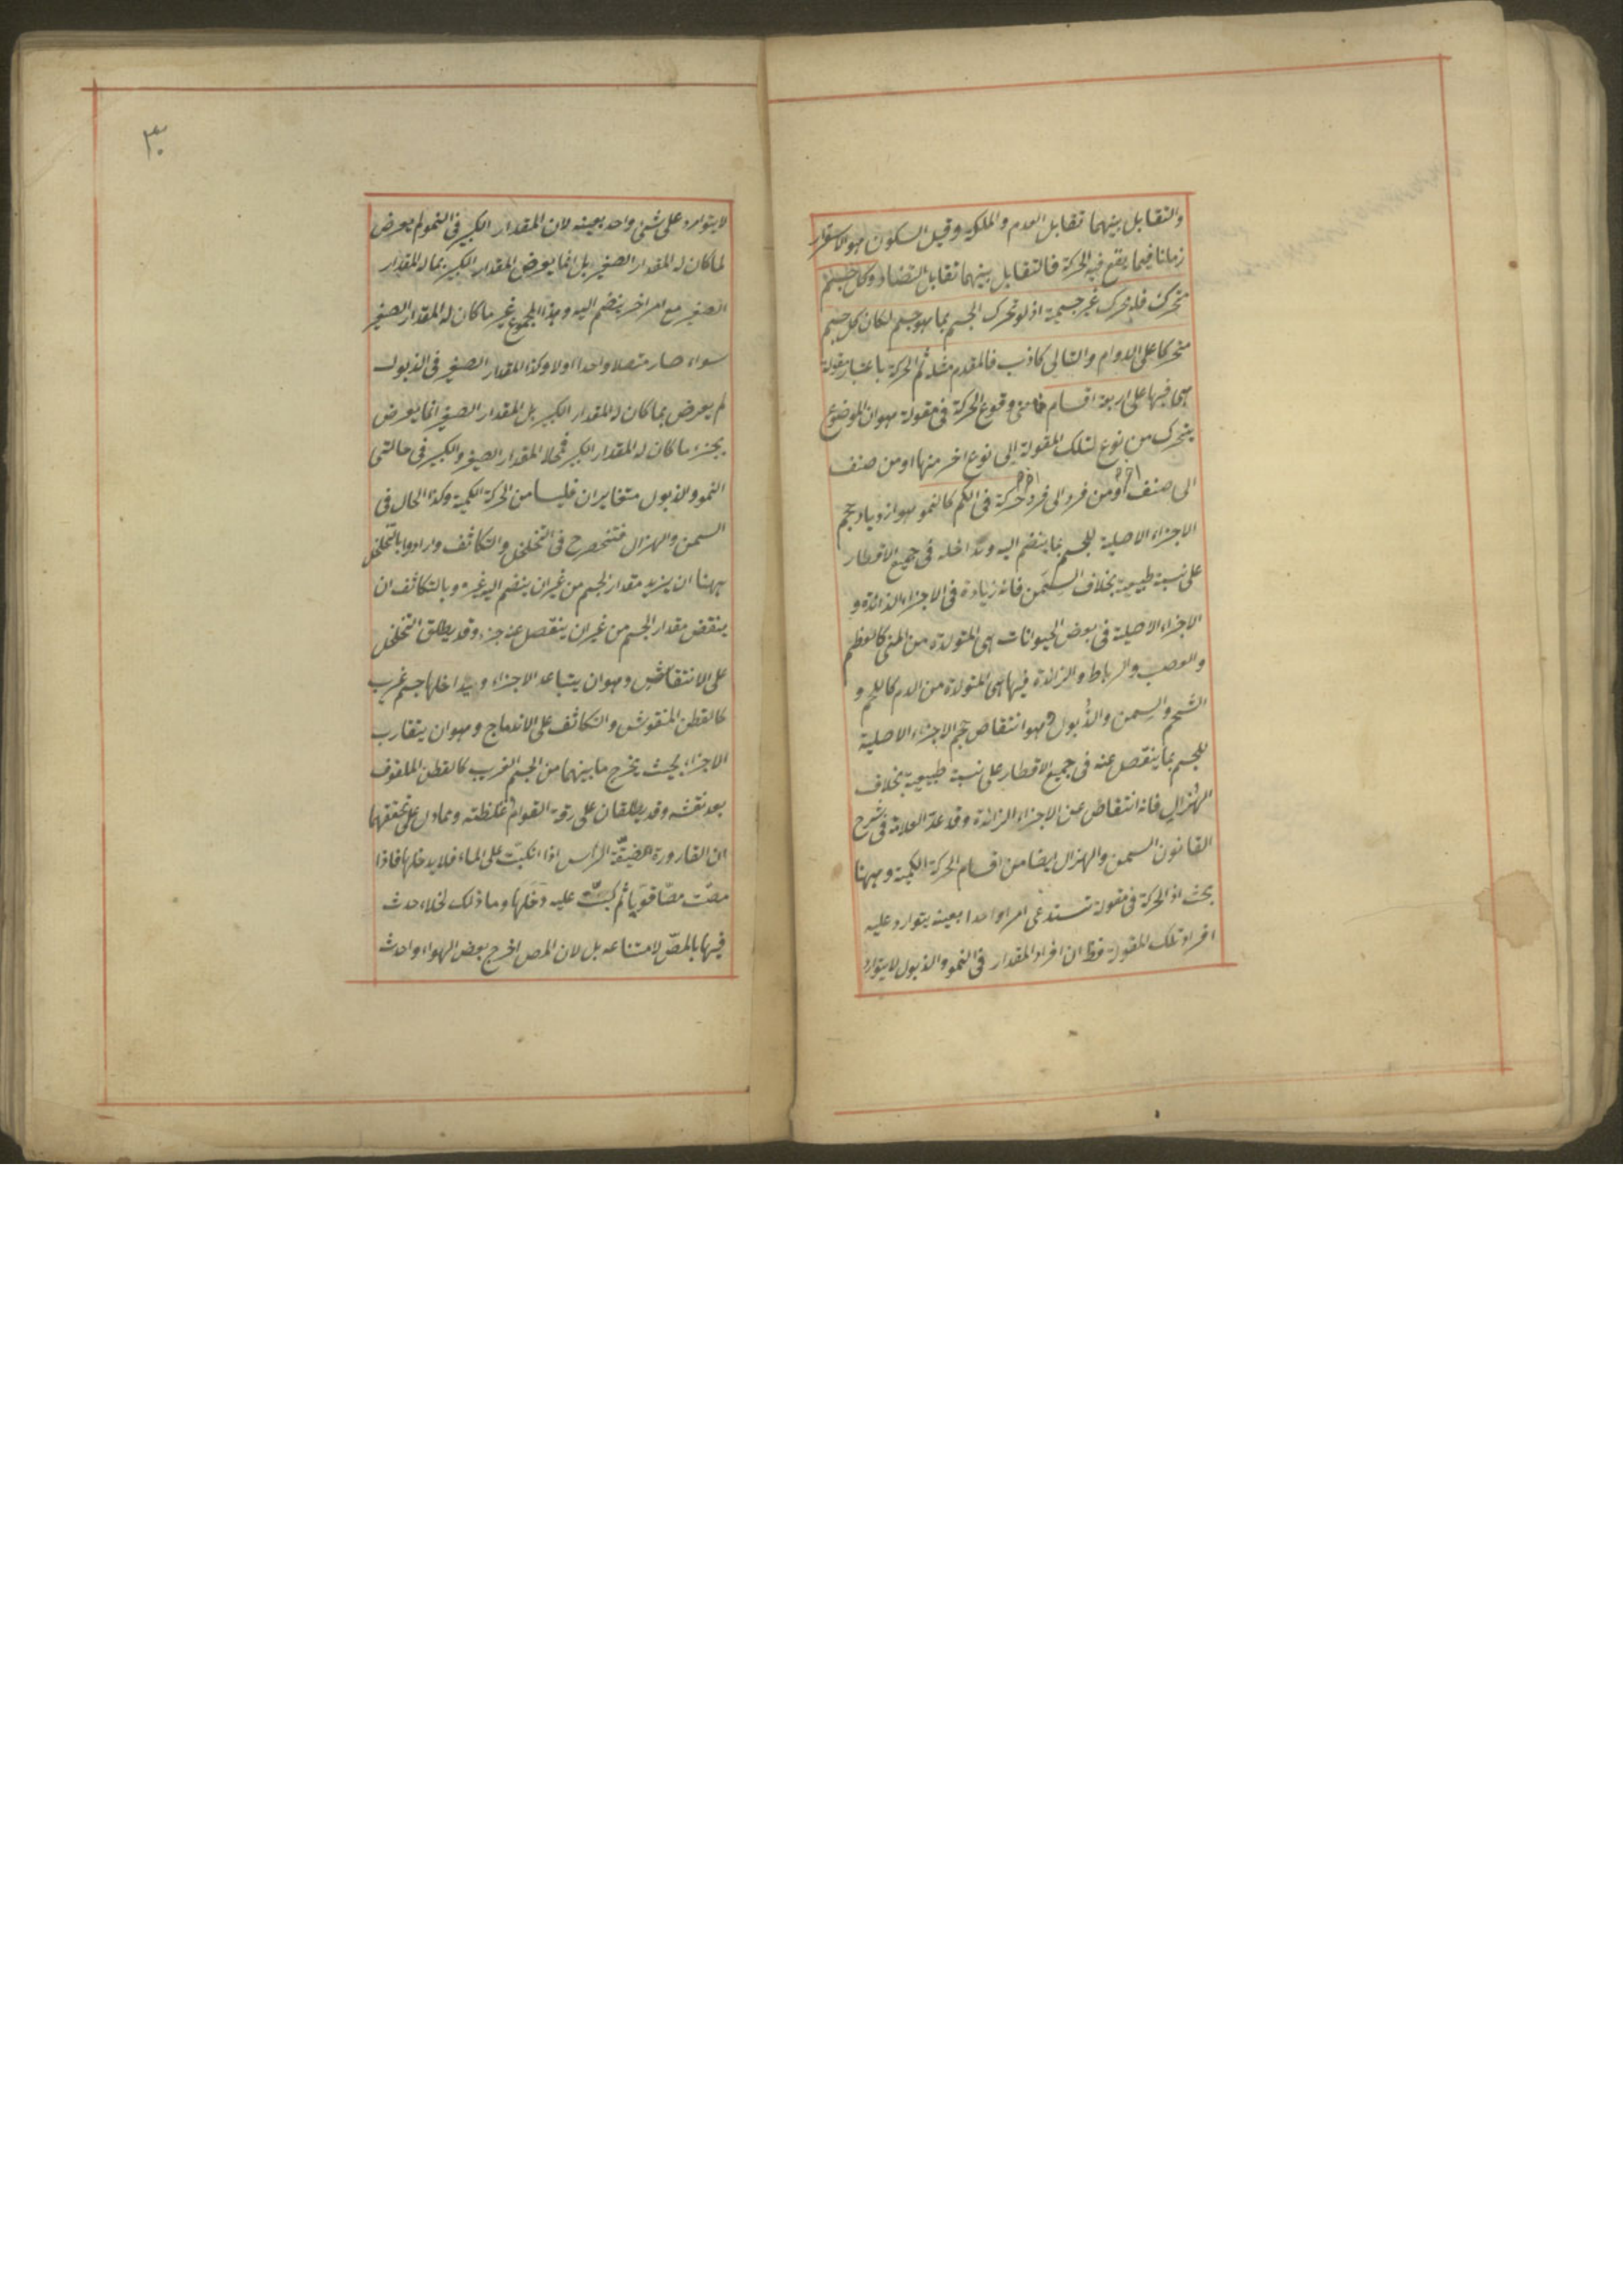 والتقابل بينهما تقابل العدم والملكة وقيل السكون هو الاستقرار
زمانا فيما يقع فيه الحركة فالتقابل بينهما تقابل التضاد وكل جسم
متحرك فله محرك غير جسمية اذ لو تحرك الجسم بما هو جسم لكان كل جسم
متحركا على الدوام والتالي كاذب فالمقدم مثله ثم الحركة باعتبار مقولة
هي فيها على اربعة اقسام معنى وقوع الحركة في مقولة هو ان الموضوع
يتحرك من نوع لتلك المقولة الى نوع اخر منها او من صنف
الى صنف او من فرد الى فرد حركة في الكم كالنمو هو ازدياد حجم
الاجزاء الاصلية للجسم بما ينضم اليه ويداخله في جميع الاقطار
على نسبة طبيعية بخلاف السمن فانه زيادة في الاجزاء الزائدة و
الاجزاء الاصلية في بعض الحيوانات هي المتولدة من المني كالعظم
والعصب والرباط والزائدة فيها هي المتولدة من الدم كاللحم و
الشحم والسمن والذبول وهو انتقاص حجم الاجزاء الاصلية
للجسم بما ينفصل عنه في جميع الاقطار على نسبة طبيعية بخلاف
الهزال فانه انتقاص عن الاجزاء الزائدة وقد عد العلامة في شرح
القانون السمن والهزال ايضا من اقسام الحركة الكمية وههنا
بحث اذ الحركة في مقولة تستدعي امرا واحدا بعينه يتوارد عليه
افراد تلك المقولة فظ ان افراد المقدار في النمو والذبول لا يتوارد
٣٠
لا يتوارد على شئ واحد بعينه لان المقدار الكبير في النمو لم يعرض
لما كان له المقدار الصغير بل انما يعرض المقدار الكبير بما له المقدار
الصغير مع امر اخر ينضم اليه وهذا المجموع غير ما كان له المقدار الصغير
سواء صار متصلا واحدا او لا وكذا المقدار الصغير في الذبول
لم يعرض بما كان له المقدار الكبير بل المقدار الصغير انما يعرض
بجزء ما كان له المقدار الكبير فمحلا المقدار الصغير والكبير في حالتي
النمو والذبول متغايران فليسا من الحركة الكمية وكذا الحال في
السمن والهزال فتنحصر ح في التخلخل والتكاثف وارادوا بالتخلخل
ههنا ان يزيد مقدار الجسم من غير ان ينضم اليه غيره وبالتكاثف ان
ينقص مقدار الجسم من غير ان ينفصل عنه جزء وقد يطلق التخلخل
على الانتفاش وهو ان يتباعد الاجزاء ويداخلها جسم غريب
كالقطن المنفوش والتكاثف على الاندماج وهو ان يتقارب
الاجزاء بحيث يخرج ما بينهما من الجسم الغريب كالقطن الملفوف
بعد نفشه وقد يطلقان على رقة القوام وغلظته ومما دل على تحققهما
ان القارورة الضيقة الراس اذا انكبت على الماء فلا يدخلها فاذا
مصت مصا قويا ثم كبت عليه دخلها وما ذلك لخلاء حدث
فيها بالمص لامتناعه بل لان المص اخرج بعض الهواء واحدث